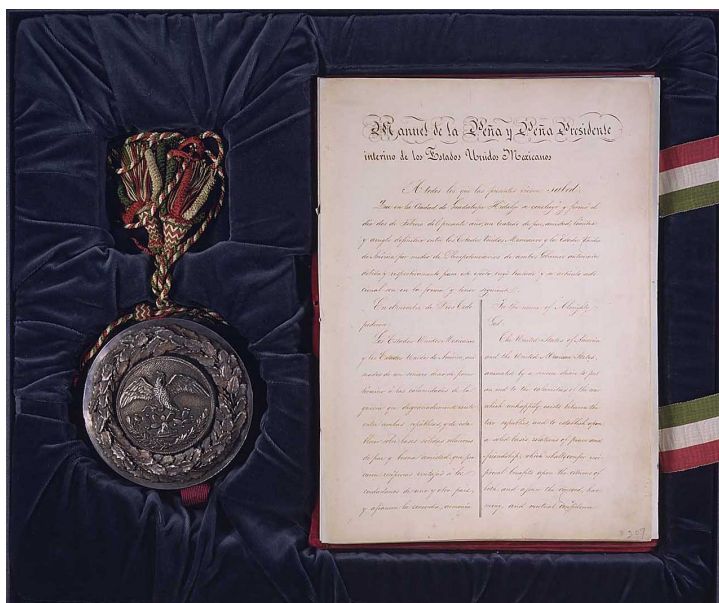 Manuel de la Peña y Peña Presidente
interino de los Estados Unidos Mexicanos
A todos los que las presentes vieren sabed:
Que en la Ciudad de Guadalupe Hidalgo se concluyó y firmó el
dia dos de Febrero del presente año, un tratado de paz, amistad, limites
y arreglo definitivo entre los Estados Unidos Mexicanos y los Estados Unidos
de America por medio de Plenipotenciarios de ambos Gobiernos autorizados
debida y respectivamente para este efecto, cuyo tratado y su articulo adi-
cional son en la forma y tenor siguiente.
En el nombre de Dios Todo-
poderoso:
Los Estados Unidos Mexicanos
y los Estados Unidos de America, ani-
mados de un sincero deseo de poner
termino á las calamidades de la
guerra que desgraciadamente existe
entre ambas repúblicas, y de esta-
blecer sobre bases sólidas relaciones
de paz y buena amistad, que pro-
curen reciprocas ventajas á los
ciudadanos de uno y otro pais,
y afiancen la concordia, armonia
In the name of Almighty
God:
The United States of America
and the United Mexican States,
animated by a sincere desire to put
an end to the calamities of the war
which unhappily exists between the
two republics, and to establish upon
a solid basis relations of peace and
friendship, which shall confer reci-
procal benefits upon the citizens of
both, and assure the concord, har-
mony, and mutual confidence
207